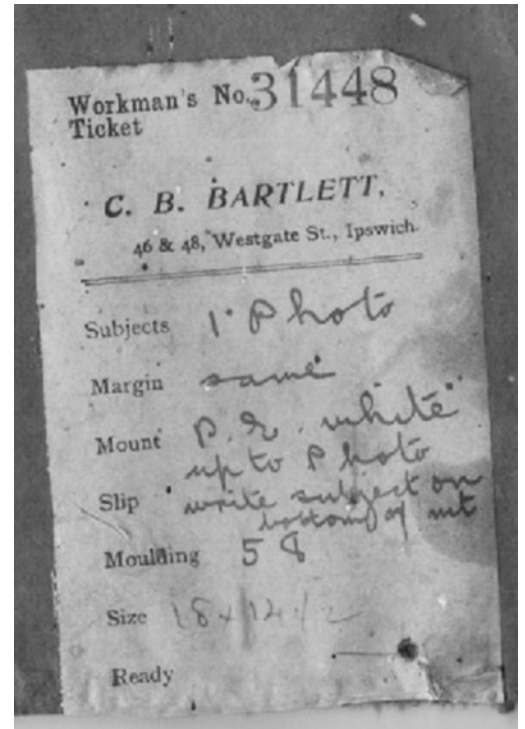 Workman's No. 31448
Ticket
C. B. BARTLETT,
46 & 48, Westgate St., Ipswich.
Subjects 1 Photo
Margin same
Mount P. E. white
up to Photo
Slip write subject on
bottom of mt
Moulding 58
Size 18 x 14 1/2
Ready